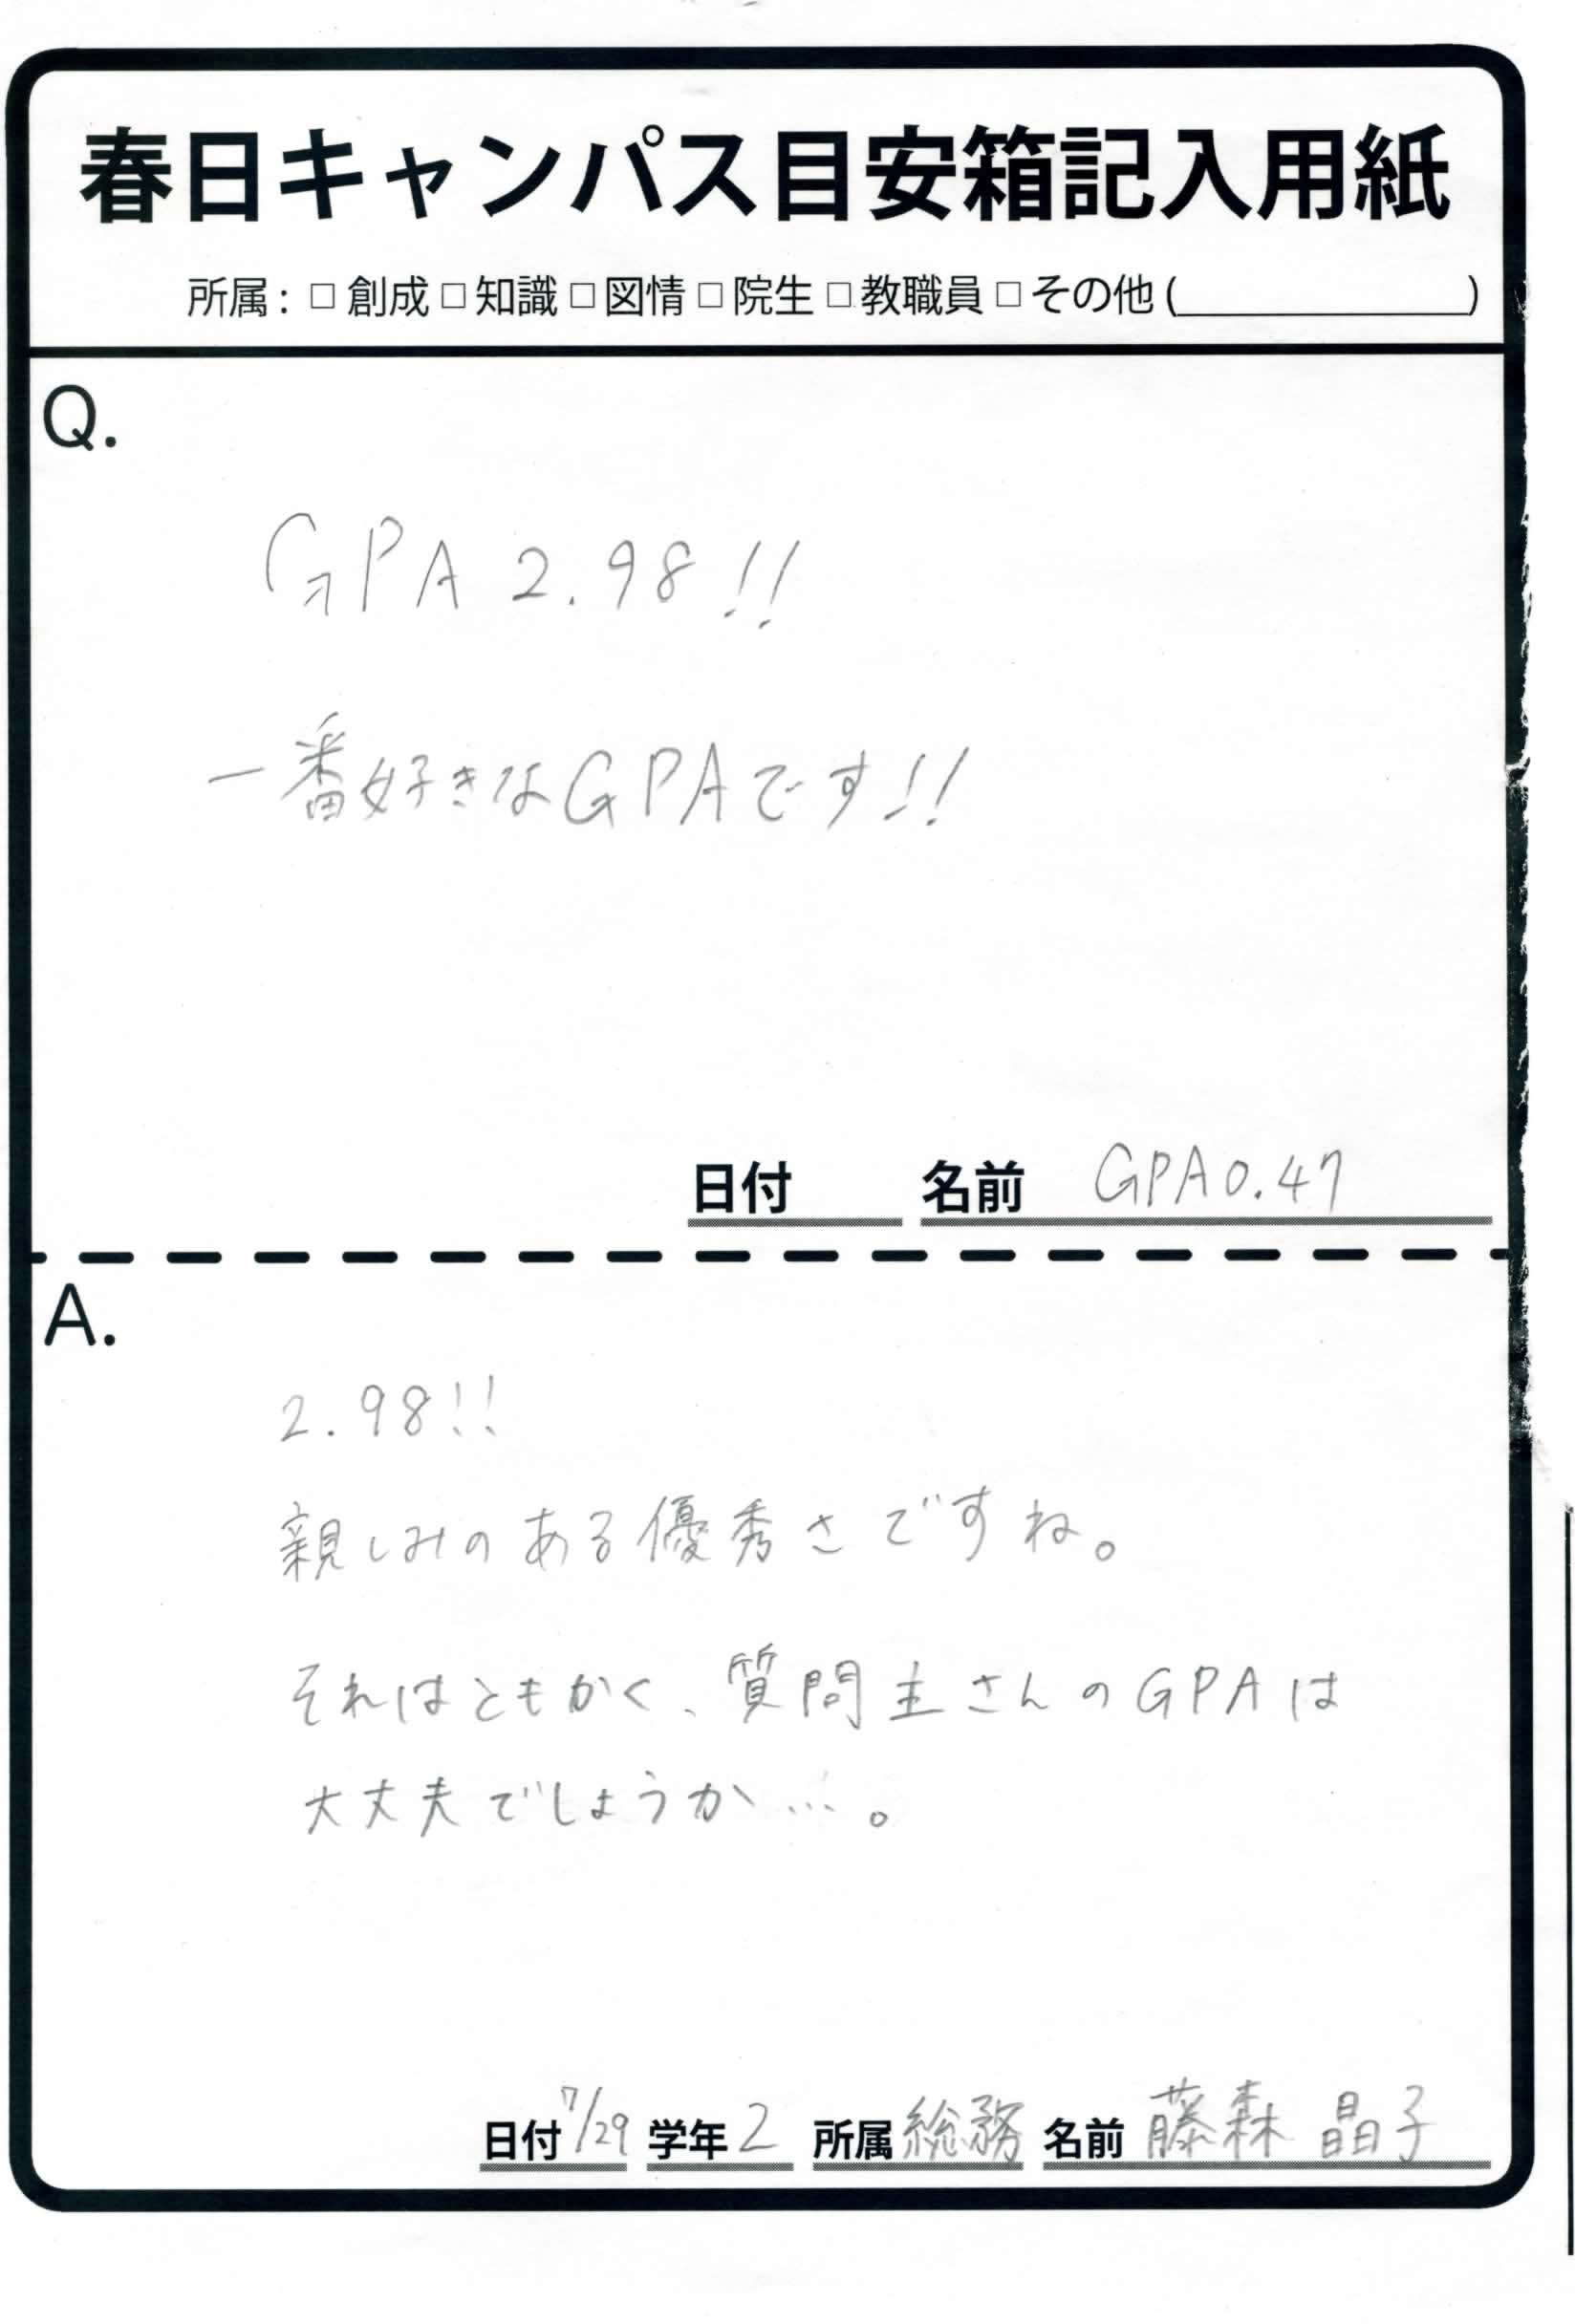 春日キャンパス目安箱記入用紙
所属: □ 創成 □ 知識 □ 図情 □ 院生 □ 教職員 □ その他 (____________)
Q.
GPA 2.98!!
一番好きなGPAです!!
日付 名前 GPA0.47
A.
2.98!!
親しみのある優秀さですね。
それはともかく、質問主さんのGPAは
大丈夫でしょうか…。
日付 7/29 学年 2 所属 総務 名前 藤森 晶子